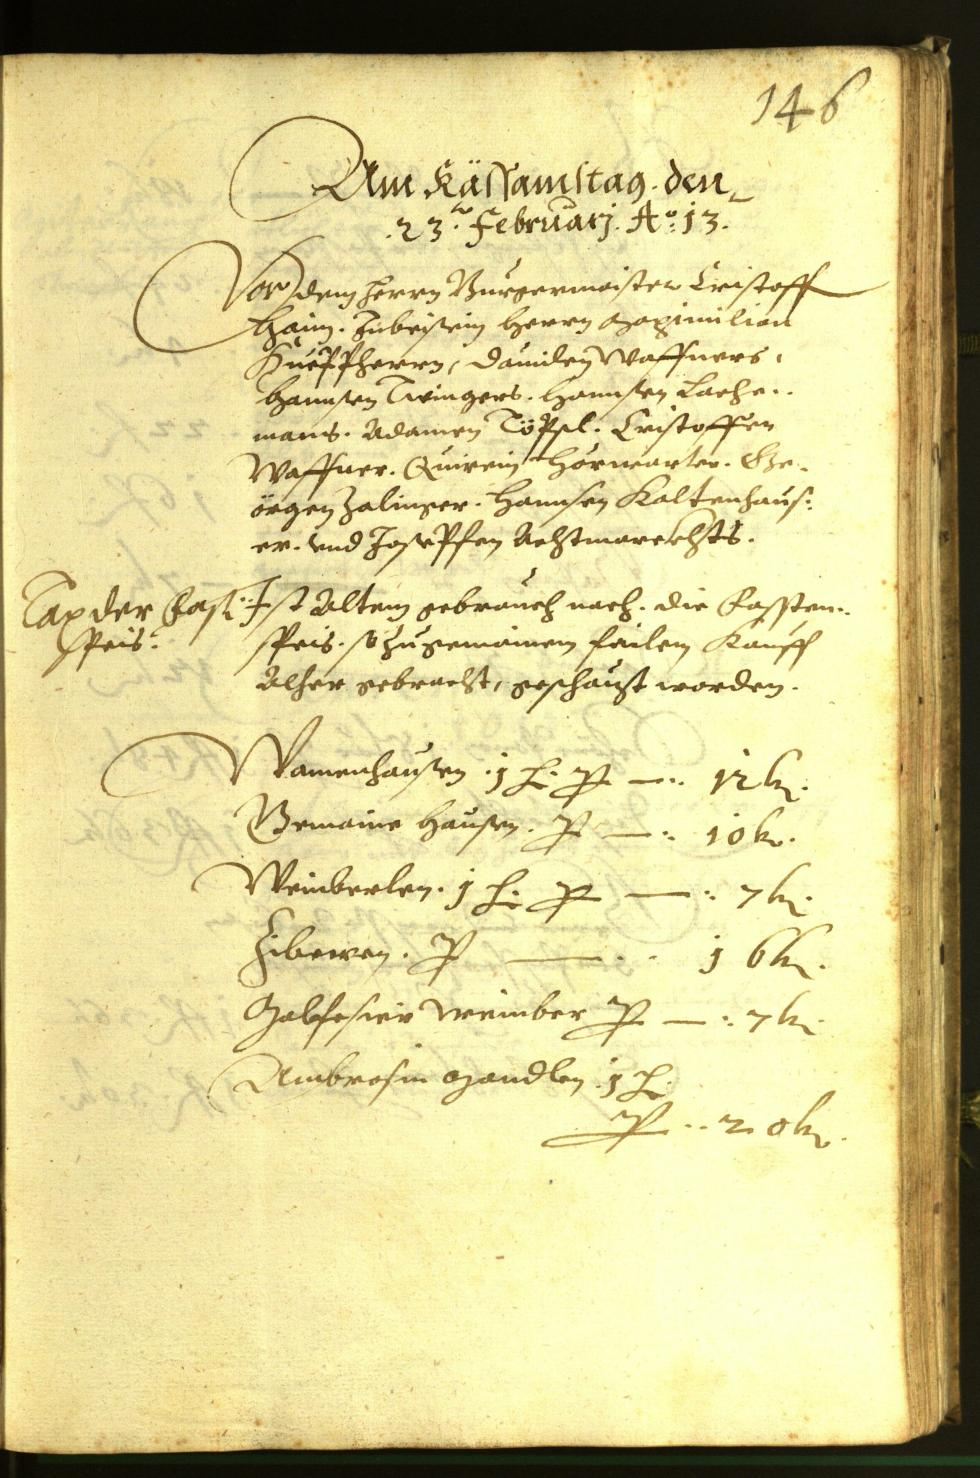 146
Am Käßsamstag den
23.ᵗᵉⁿ Februarj. Aº: 13.
Vor dem herrn Burgermaister Cristoff
Haim. Inbeisein herrn Maximilian
Hueppherrn, Dauiden Waffners,
Hannsen Twingers. Hannsen Lache-
mans. Adamen Töpsl. Cristoffen
Waffner. Quirein Hörwarter. Ge-
örgen Zalinger. Hannsen Kaltenhaus-
er. vnd Josephen
Tax der Fasst-
speis.
Ist Altem gebrauch nach. die Fassten-
speis. so zu gemainem failen Kauff
Alher gebracht, geschäzt worden.
hausen. 1 h. p — 12 kr.
Gemaine hausen. p — 10 kr.
Weinberlen. 1 h. p — 7 kr.
Zibewen. p — 16 kr.
weinber p — 7 kr.
Ambrosin Mandlen. 1 h.
p 20 kr.